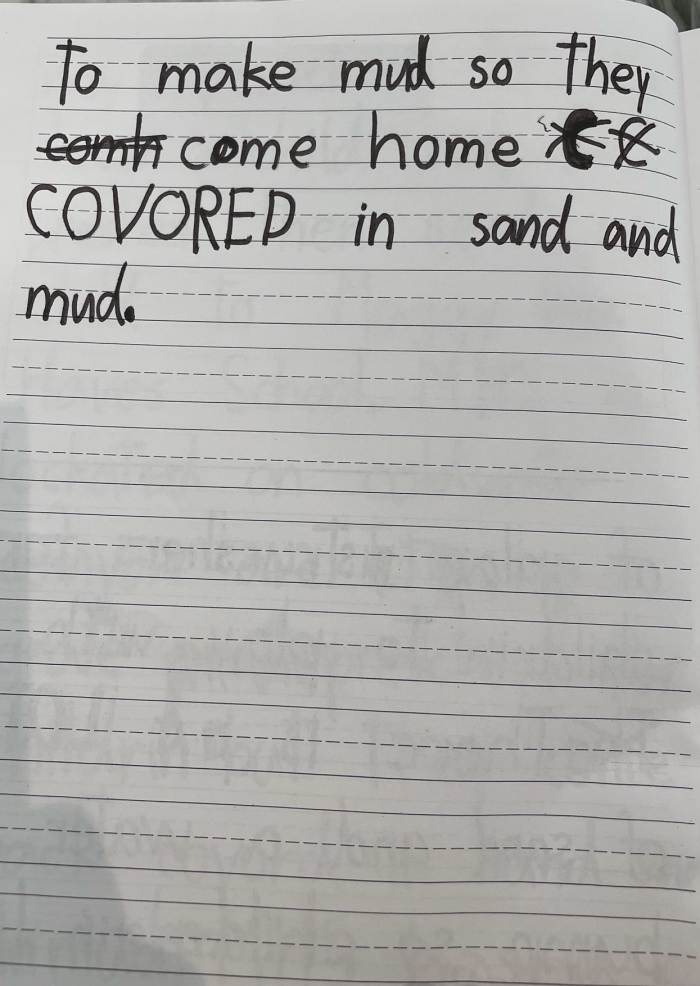 To make mud so they
come home
COVORED in sand and
mud.